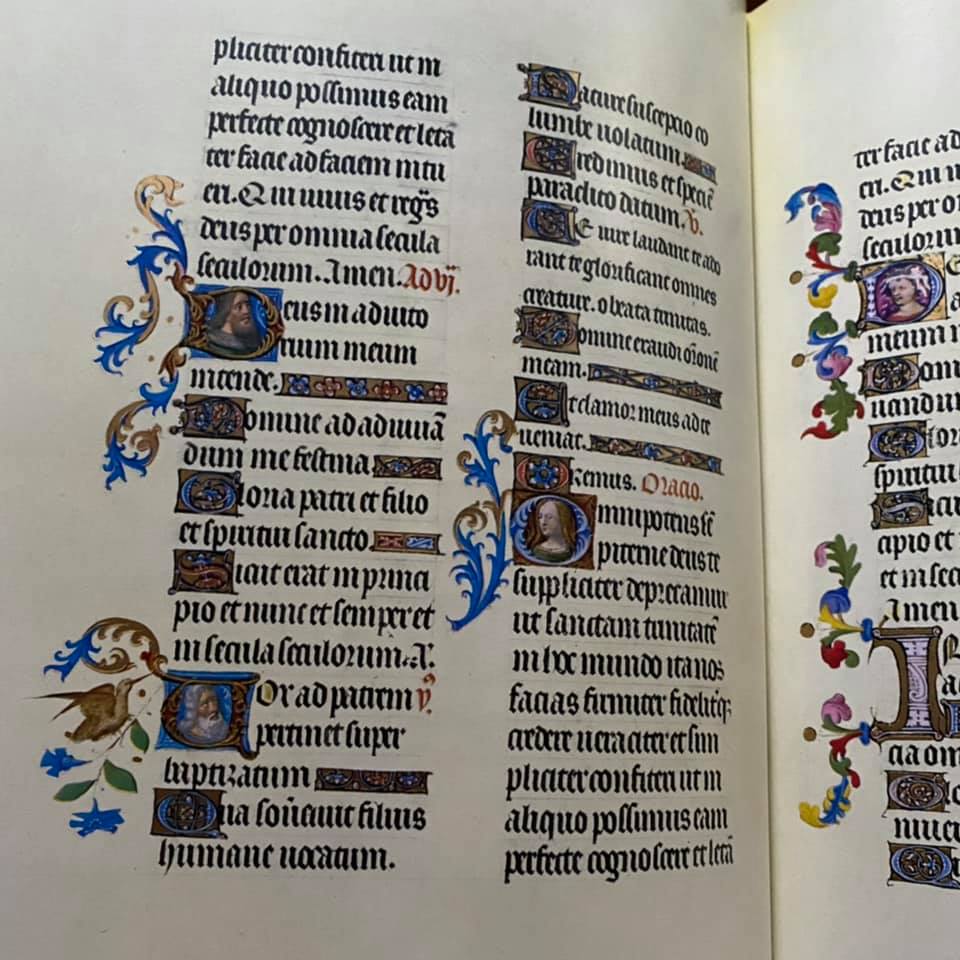 pliciter confiteri ut in
aliquo possimus eam
perfecte cognoscere et letā
ter facie ad faciem intu
eri. Qui vivis et regs
deus per omnia secula
seculorum. Amen. Ad vj.
Deus in adiuto
rium meum
intende.
Domine ad adiuuā
dum me festina
Gloria patri et filio
et spiritui sancto
Sicut erat in princi
pio et nunc et semper et
in secula seculorum. A.
Vor ad patrem v.
pertinet super
baptizatum
Qua filius
humane uocatum.
Nature susceptio co
lumbe uolatum.
Credimus et specie
paraclito datum. V.
Te iure laudant te ado
rant te glorificant omnes
creature. o beata trinitas.
Domine exaudi oīonē
meam.
Et clamor meus ad te
ueniat.
Oremus. Oracio.
Omnipotens sē
piterne deus te
suppliciter deprecamur
ut sanctam trinitatē
in hoc mundo ita nos
facias firmiter fidelitq;
credere ueraciter et sim
pliciter confiteri ut in
aliquo possimus eam
perfecte cognoscere et letā
ter facie ad
eri. Qui
deus per o
seculorum
meum
Dom
Glor
spiritui
Sicu
cipio et
et in secu
Amen